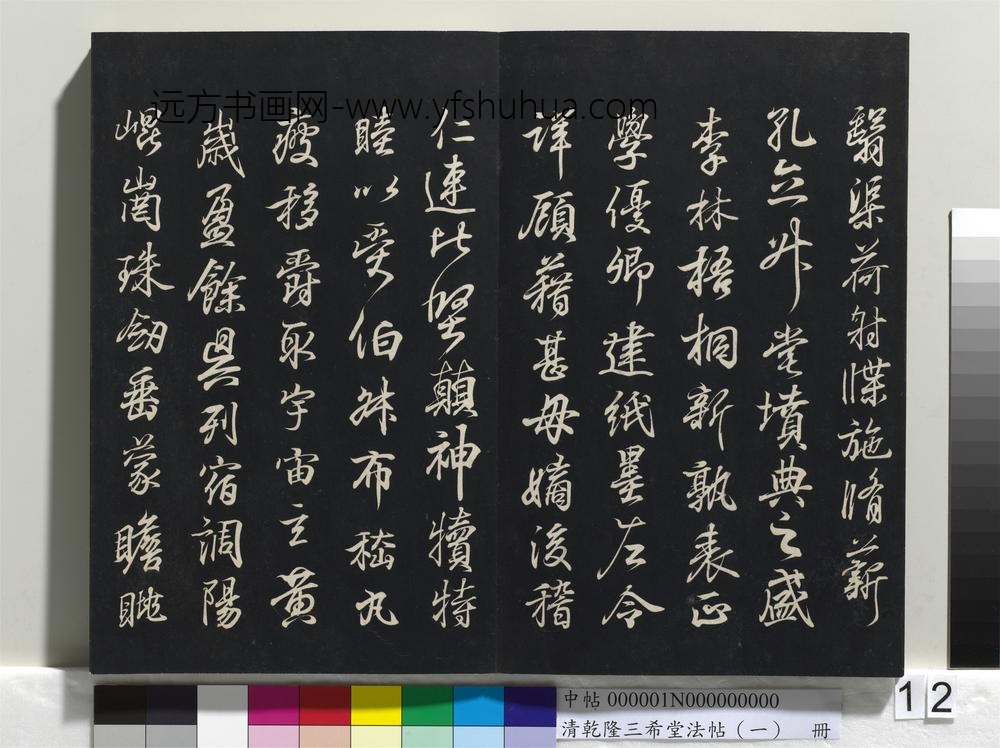 远方书画网-www.yfshuhua.com
翳渠荷射牒施脩薪
孔立升堂墳典之盛
李林梧桐新孰表正
學優卿建紙墨左令
詳顧藉甚毋嫡後稽
仁連比堅顛神犢特
睦以受伯叔布嵇丸
疲移爵取宇宙玄黄
歲盈餘具列宿調陽
崐崗珠劒垂蒙瞻眺
中帖 000001N000000000
清乾隆三希堂法帖（一） 冊
12